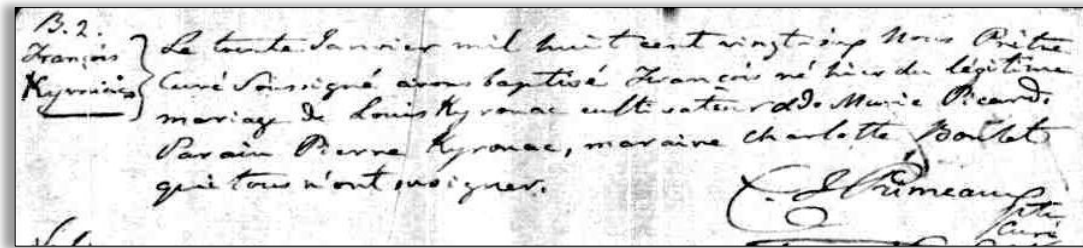 B. 2.
François
Le trente Janvier mil huit cent vingt-six Nous Prêtre
Curé Soussigné avons baptisé François né hier du légitime
mariage de Louis Kyrouac cultivateur & de Marie Picard.
Parain Pierre Kyrouac, maraine Charlotte Boulet
qui tous n'ont su signer.
C. J. Primeau
ptre
Curé